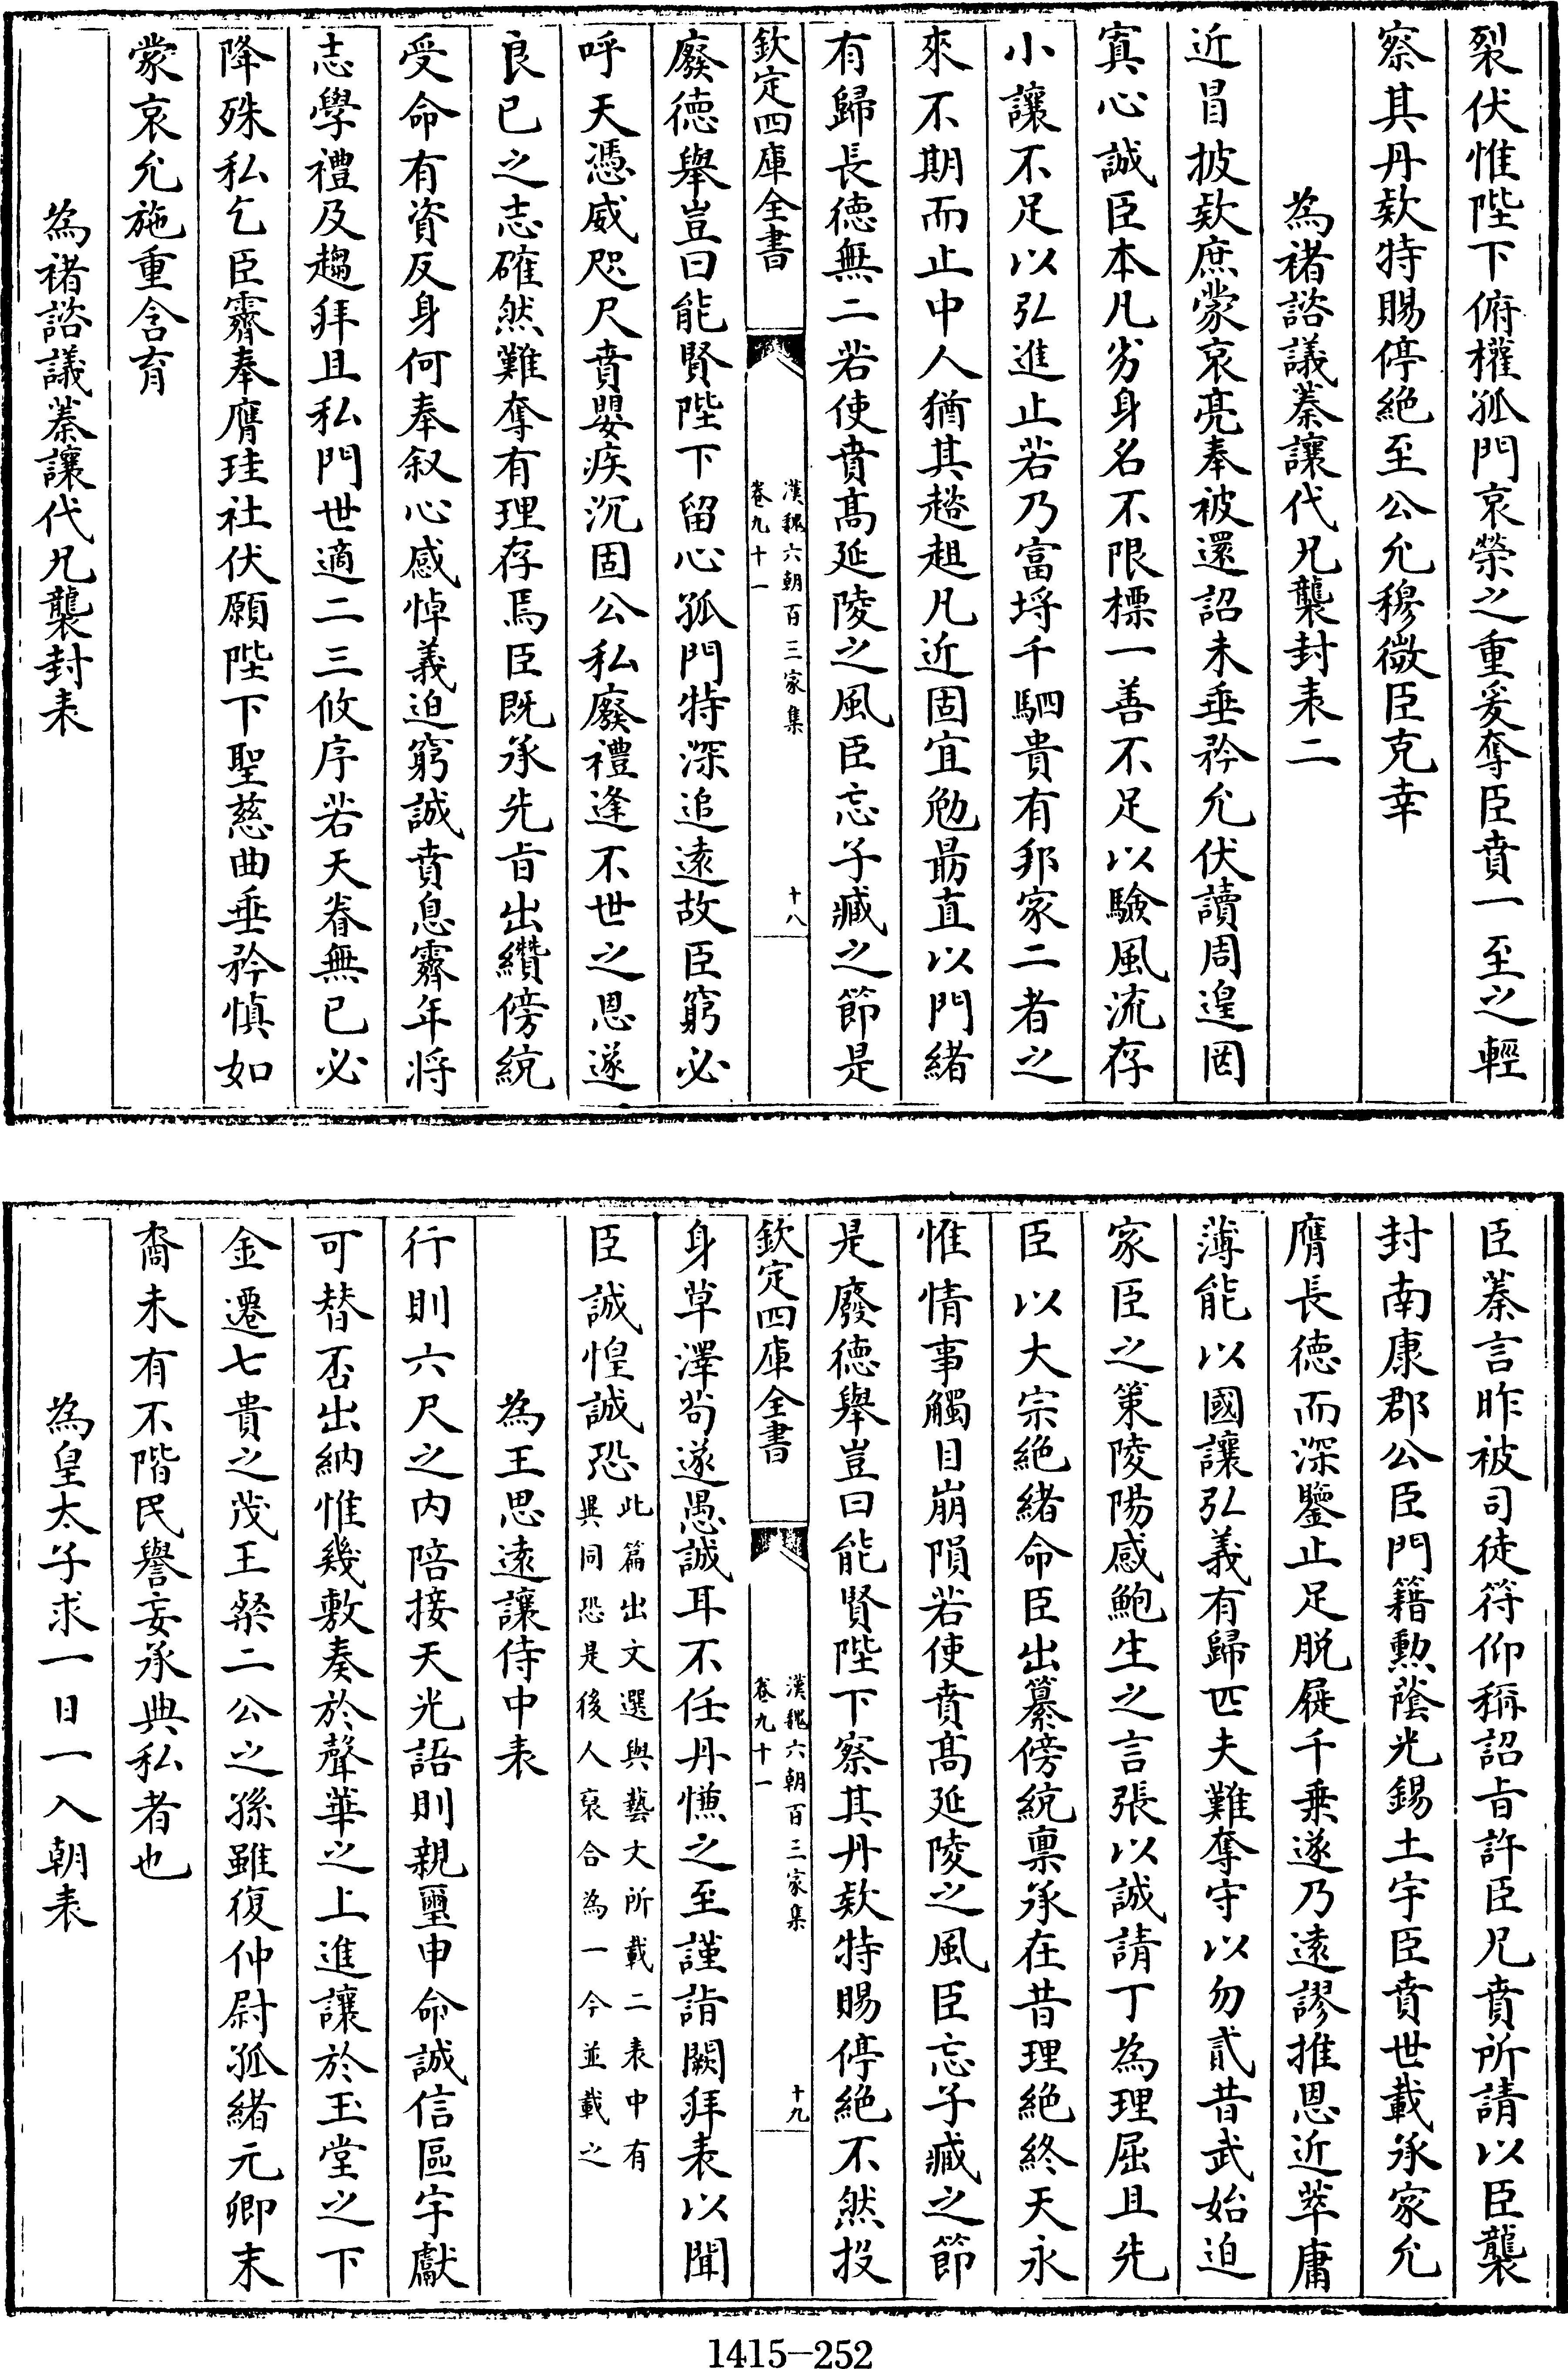 裂伏惟陛下俯權孤門哀榮之重爰奪臣賁一至之輕
察其丹欵特賜停絶至公允穆微臣克幸
為褚諮議蓁讓代兄襲封表二
近冒披欵庶蒙哀亮奉被還詔未垂矜允伏讀周遑罔
寘心誠臣本凡劣身名不限標一善不足以驗風流存
小讓不足以弘進止若乃富埓千駟貴有邦家二者之
來不期而止中人猶其趑趄凡近固宜勉勗直以門緒
有歸長德無二若使賁髙延陵之風臣忘子臧之節是
欽定四庫全書
漢魏六朝百三家集
卷九十一
十八
廢德舉豈曰能賢陛下留心孤門特深追逺故臣窮必
呼天憑威咫尺賁嬰疾沉固公私廢禮逢不世之恩遂
良已之志確然難奪有理存焉臣既承先㫖出纘傍統
受命有資反身何奉叙心感悼義迫窮誠賁息霽年将
志學禮及趨拜且私門世適二三攸序若天眷無已必
降殊私乞臣霽奉膺珪社伏願陛下聖慈曲垂矜慎如
蒙哀允施重含育
為褚諮議蓁讓代兄襲封表
臣蓁言昨被司徒符仰稱詔㫖許臣兄賁所請以臣襲
封南康郡公臣門籍勲蔭光錫土宇臣賁世載承家允
膺長德而深鑒止足脱屣千乗遂乃逺謬推恩近萃庸
薄能以國讓弘義有歸匹夫難奪守以勿貳昔武始迫
家臣之策陵陽感鮑生之言張以誠請丁為理屈且先
臣以大宗絶緒命臣出纂傍統稟承在昔理絶終天永
惟情事觸目崩隕若使賁髙延陵之風臣忘子臧之節
是廢德舉豈曰能賢陛下察其丹欵特賜停絶不然投
欽定四庫全書
漢魏六朝百三家集
卷九十一
十九
身草澤茍遂愚誠耳不任丹慊之至謹詣闕拜表以聞
臣誠惶誠恐
此篇出文選與藝文所載二表中有
異同恐是後人裒合為一今並載之
為王思逺讓侍中表
行則六尺之内陪接天光語則親璽申命誠信區宇獻
可替否出納惟幾敷奏於聲華之上進讓於玉堂之下
金遷七貴之茂王粲二公之孫雖復仲尉孤緒元卿末
裔未有不階民譽妄承典私者也
為皇太子求一日一入朝表
1415-252